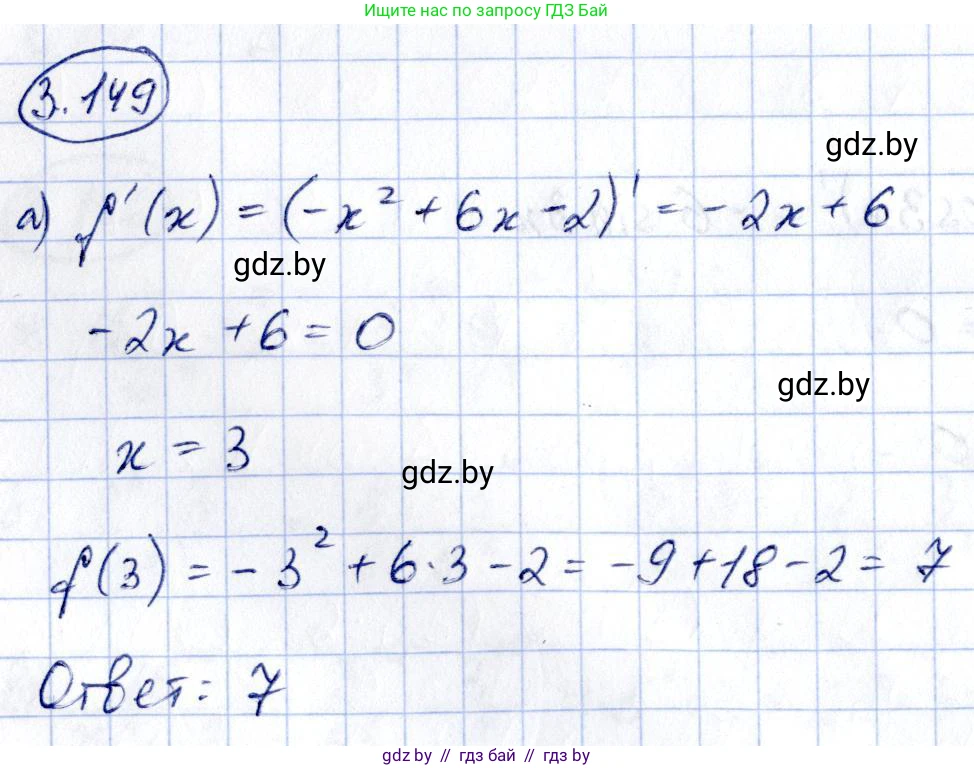 Ищите нас по запросу ГДЗ Бай
3.149
gdz.by
а) f'(x) = (-x² + 6x - 2)' = -2x + 6
gdz.by
-2x + 6 = 0
gdz.by
x = 3
gdz.by
f(3) = -3² + 6·3 - 2 = -9 + 18 - 2 = 7
Ответ: 7
gdz.by // гдз бай // гдз by